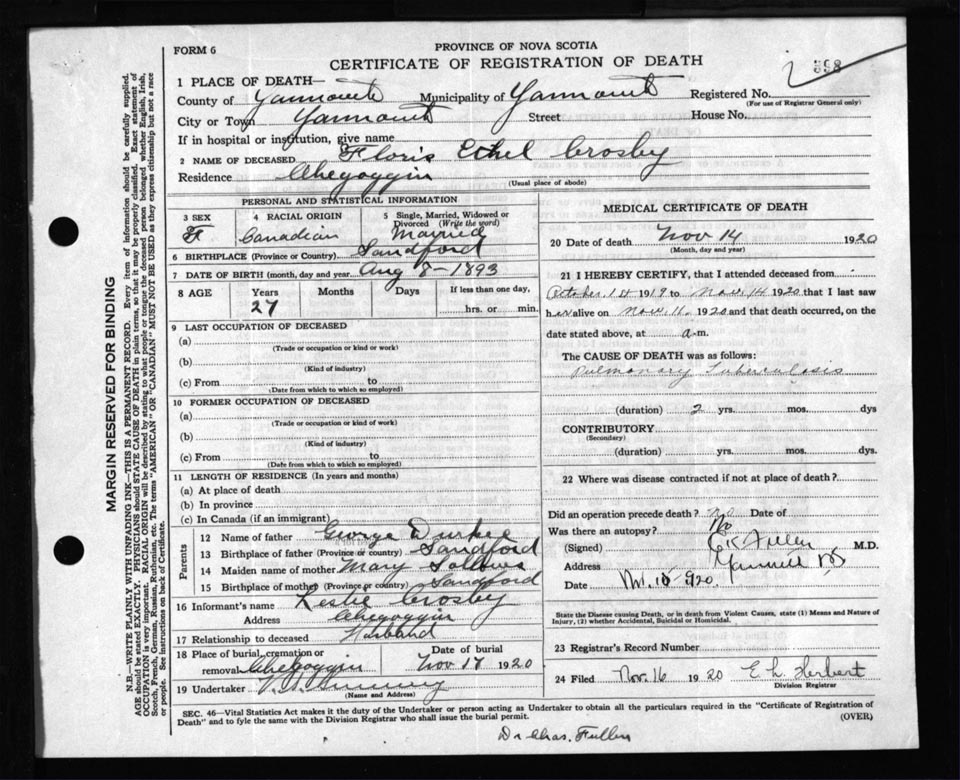 FORM 6
PROVINCE OF NOVA SCOTIA
CERTIFICATE OF REGISTRATION OF DEATH
598
1 PLACE OF DEATH—
County of Yarmouth Municipality of Yarmouth Registered No.
(For use of Registrar General only)
City or Town Yarmouth Street House No.
If in hospital or institution, give name
2 NAME OF DECEASED Floris Ethel Crosby
Residence Chegoggin
(Usual place of abode)
PERSONAL AND STATISTICAL INFORMATION
3 SEX 4 RACIAL ORIGIN 5 Single, Married, Widowed or Divorced (Write the word)
F Canadian Married
6 BIRTHPLACE (Province or Country) Sandford
7 DATE OF BIRTH (month, day and year) Aug 8-1893
8 AGE Years Months Days If less than one day,
27 hrs. or min.
9 LAST OCCUPATION OF DECEASED
(a)
(Trade or occupation or kind or work)
(b)
(Kind of industry)
(c) From to
(Date from which to which so employed)
10 FORMER OCCUPATION OF DECEASED
(a)
(Trade or occupation or kind of work)
(b)
(Kind of industry)
(c) From to
(Date from which to which so employed)
11 LENGTH OF RESIDENCE (In years and months)
(a) At place of death
(b) In province
(c) In Canada (if an immigrant)
Parents
12 Name of father George Durkee
13 Birthplace of father (Province or country) Sandford
14 Maiden name of mother Mary Sollows
15 Birthplace of mother (Province or country) Sandford
16 Informant's name Leslie Crosby
Address Chegoggin
17 Relationship to deceased Husband
18 Place of burial, cremation or removal Chegoggin
Date of burial Nov 17 1920
19 Undertaker
(Name and Address)
MEDICAL CERTIFICATE OF DEATH
20 Date of death Nov 14 1920
(Month, day and year)
21 I HEREBY CERTIFY, that I attended deceased from
October 1st 1919 to Nov. 14 1920 that I last saw
her alive on Nov. 11. 1920 and that death occurred, on the
date stated above, at a-m.
The CAUSE OF DEATH was as follows:
Pulmonary Tuberculosis
(duration) 2 yrs. mos. dys
CONTRIBUTORY
(Secondary)
(duration) yrs. mos. dys
22 Where was disease contracted if not at place of death?
Did an operation precede death? no Date of
Was there an autopsy? No
(Signed) Fuller M.D.
Address Yarmouth NS
Date Nov. 15-920.
State the Disease causing Death, or in death from Violent Causes, state (1) Means and Nature of
Injury, (2) whether Accidental, Suicidal or Homicidal.
23 Registrar's Record Number
24 Filed Nov. 16 1920 E L Herbert
Division Registrar
SEC. 46—Vital Statistics Act makes it the duty of the Undertaker or person acting as Undertaker to obtain all the particulars required in the "Certificate of Registration of
Death" and to fyle the same with the Division Registrar who shall issue the burial permit.
(OVER)
Dr Chas. Fuller
MARGIN RESERVED FOR BINDING
N.B.—WRITE PLAINLY WITH UNFADING INK—THIS IS A PERMANENT RECORD. Every item of information should be carefully supplied.
AGE should be stated EXACTLY. PHYSICIANS should STATE CAUSE OF DEATH in plain terms, so that it may be properly classified. Exact statement of
OCCUPATION is very important. RACIAL ORIGIN will be described by stating to what people or tongue the deceased person belonged whether English, Irish,
Scotch, French, German, Russian, Ruthenian, etc. The terms "AMERICAN" OR "CANADIAN" MUST NOT BE USED as they express citizenship but not a race
or people. See instructions on back of Certificate.